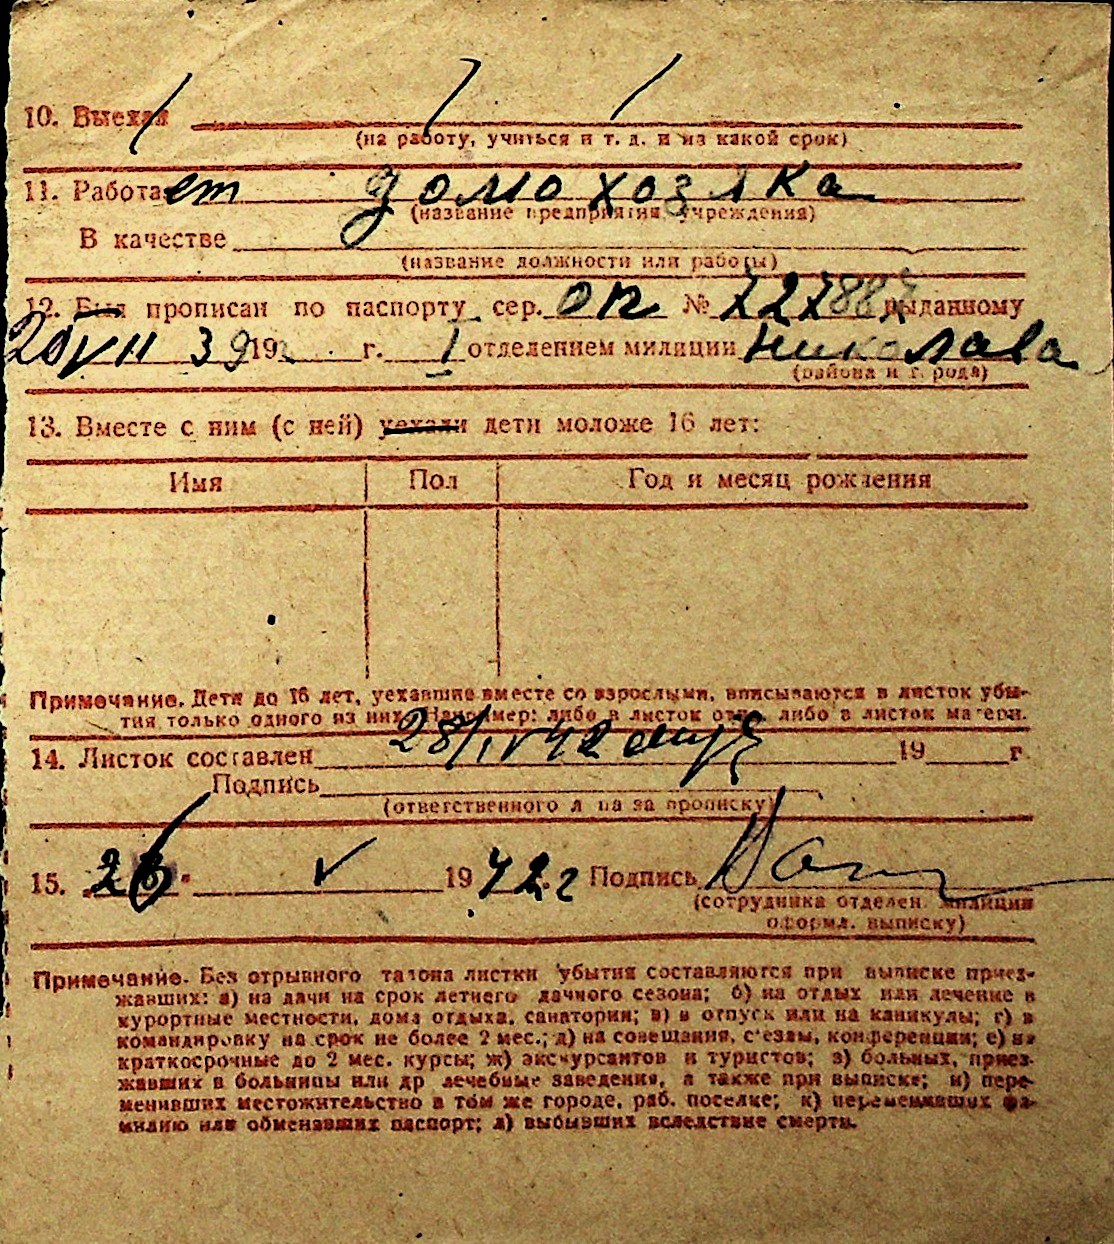 10. Выехал
(на работу, учиться и т. д. и на какой срок)
11. Работает домохозяка
(название предприятия, учреждения)
В качестве
(название должности или работы)
12. Был прописан по паспорту сер. оп № 727887 выданному
20/VII 39 19 г. I отделением милиции Николава
(района и города)
13. Вместе с ним (с ней) уехали дети моложе 16 лет:
Имя Пол Год и месяц рождения
Примечание. Дети до 16 лет, уехавшие вместе со взрослыми, вписываются в листок убы-
тия только одного из них. Например: либо в листок отца, либо в листок матери.
14. Листок составлен 28/IV 42 19 г.
Подпись
(ответственного лица за прописку)
15. „26“ V 1942 г Подпись
(сотрудника отделен. милиции
оформл. выписку)
Примечание. Без отрывного талона листки убытия составляются при выписке приез-
жавших: а) на дачи на срок летнего дачного сезона; б) на отдых или лечение в
курортные местности, дома отдыха, санатории; в) в отпуск или на каникулы; г) в
командировку на срок не более 2 мес.; д) на совещания, с'езды, конференции; е) на
краткосрочные до 2 мес. курсы; ж) экскурсантов и туристов; з) больных, приез-
жавших в больницы или др лечебные заведения, а также при выписке; и) пере-
менивших местожительство в том же городе, раб. поселке; к) переменивших фа-
милию или обменавших паспорт; л) выбывших вследствие смерти.